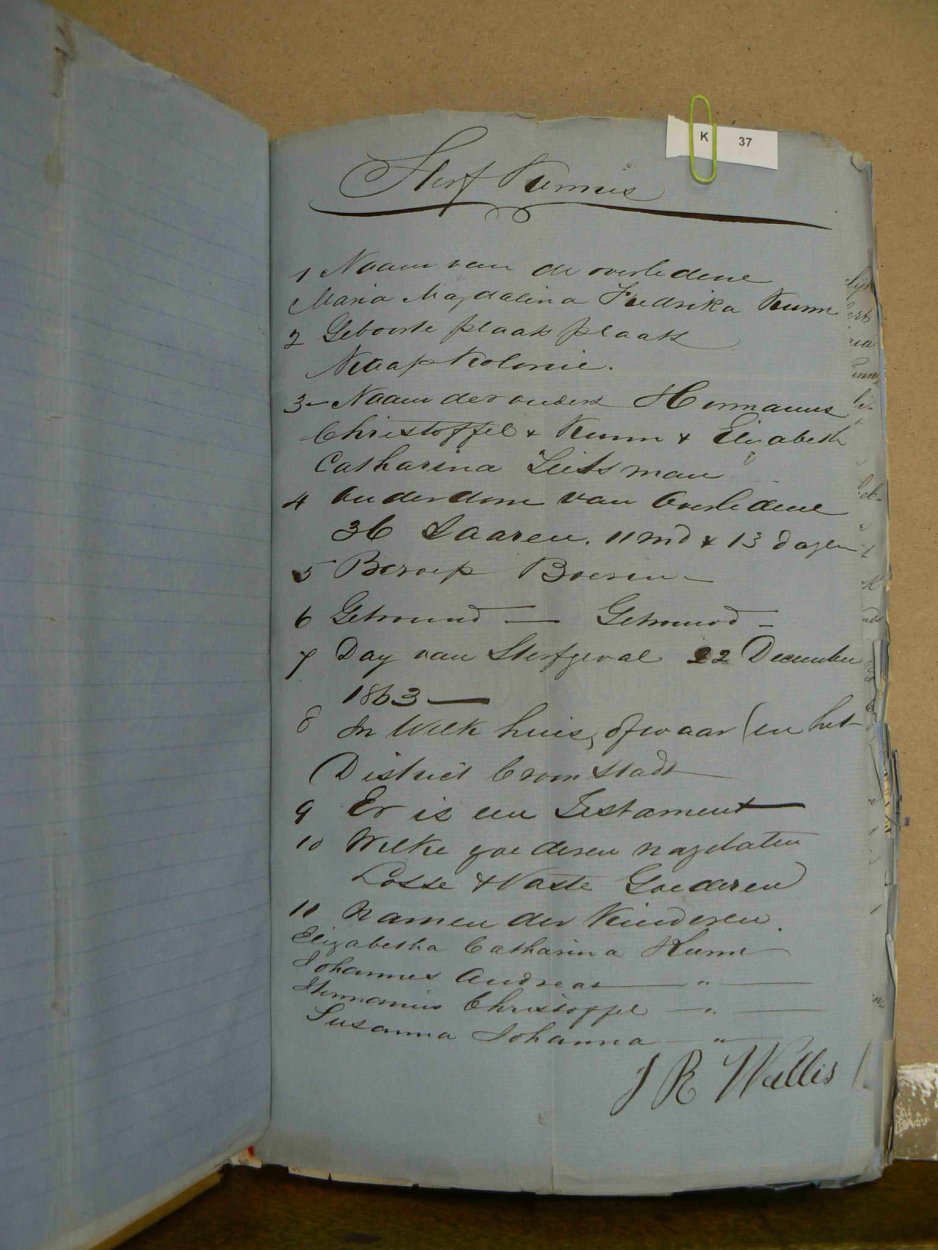 K 37
Sterf Kennis
1 Naam van de overledene
Maria Magdalina Fredrika Kumm
2 Geboorte plaats plaats
Kaap Kolonie.
3 – Naam der ouders Hermanus
Christoffel Kumm & Elizabeth
Catharina
4 Ouderdom van Overledene
36 Jaaren. 11 md & 13 dagen
5 Beroep Boerin –
6 Getrouwd — Getrouwd –
7 Day van Sterfgeval 22 December
1863 —
8 In Welk huis, of waar (in het
District Croonstadt
9 Er is een Testament —
10 Welke goederen nagelaten
Losse & Vaste Goederen
11 Namen der Kinderen
Elizabetha Catharina Kumm
Johannes Andreas — " —
Hermanus Christoffel — " —
Susanna Johanna — "
J R Wallis